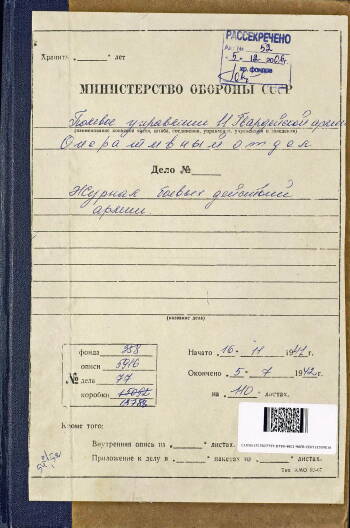 РАССЕКРЕЧЕНО
Акт № 52
"5" 12 2006
хр. фондов
Хранить " " лет
МИНИСТЕРСТВО ОБОРОНЫ СССР
Полевое управление 11 Гвардейской армии
(наименование воинской части, штаба, соединения, управления, учреждения и заведения)
Оперативный отдел
Дело №
Журнал боевых действий
армии.
(название дела)
фонда 358
описи 5916
№ дела 77
коробки 13788
Начато "16" 11 1941 г.
Окончено "5" 7 1942 г.
на 110 листах.
Кроме того:
Внутренняя опись на " " листах.
Приложение к делу в " " пакетах на " " листах.
Тип. АМО